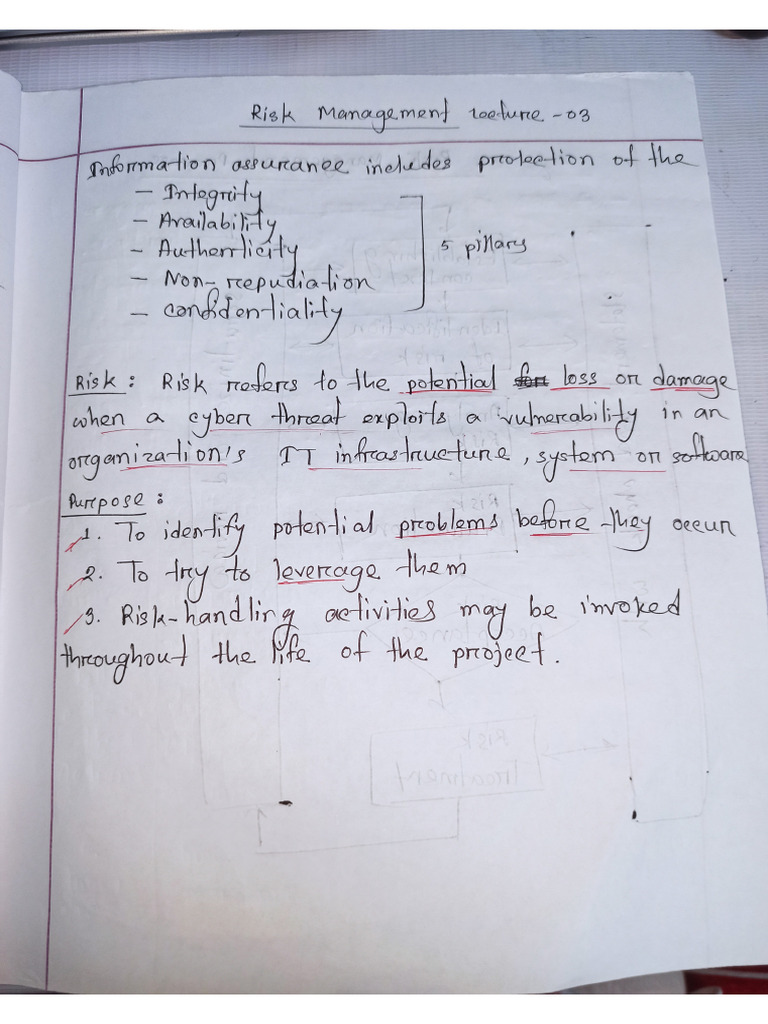 Risk Management Lecture - 03
Information assurance includes protection of the
- Integrity
- Availability
- Authenticity
5 pillars
- Non-repudiation
- Confidentiality
Risk : Risk refers to the potential loss or damage
when a cyber threat exploits a vulnerability in an
organization's IT infrastructure, system or software
Purpose :
1. To identify potential problems before they occur
2. To try to leverage them
3. Risk-handling activities may be invoked
throughout the life of the project.
Risk
Treatment